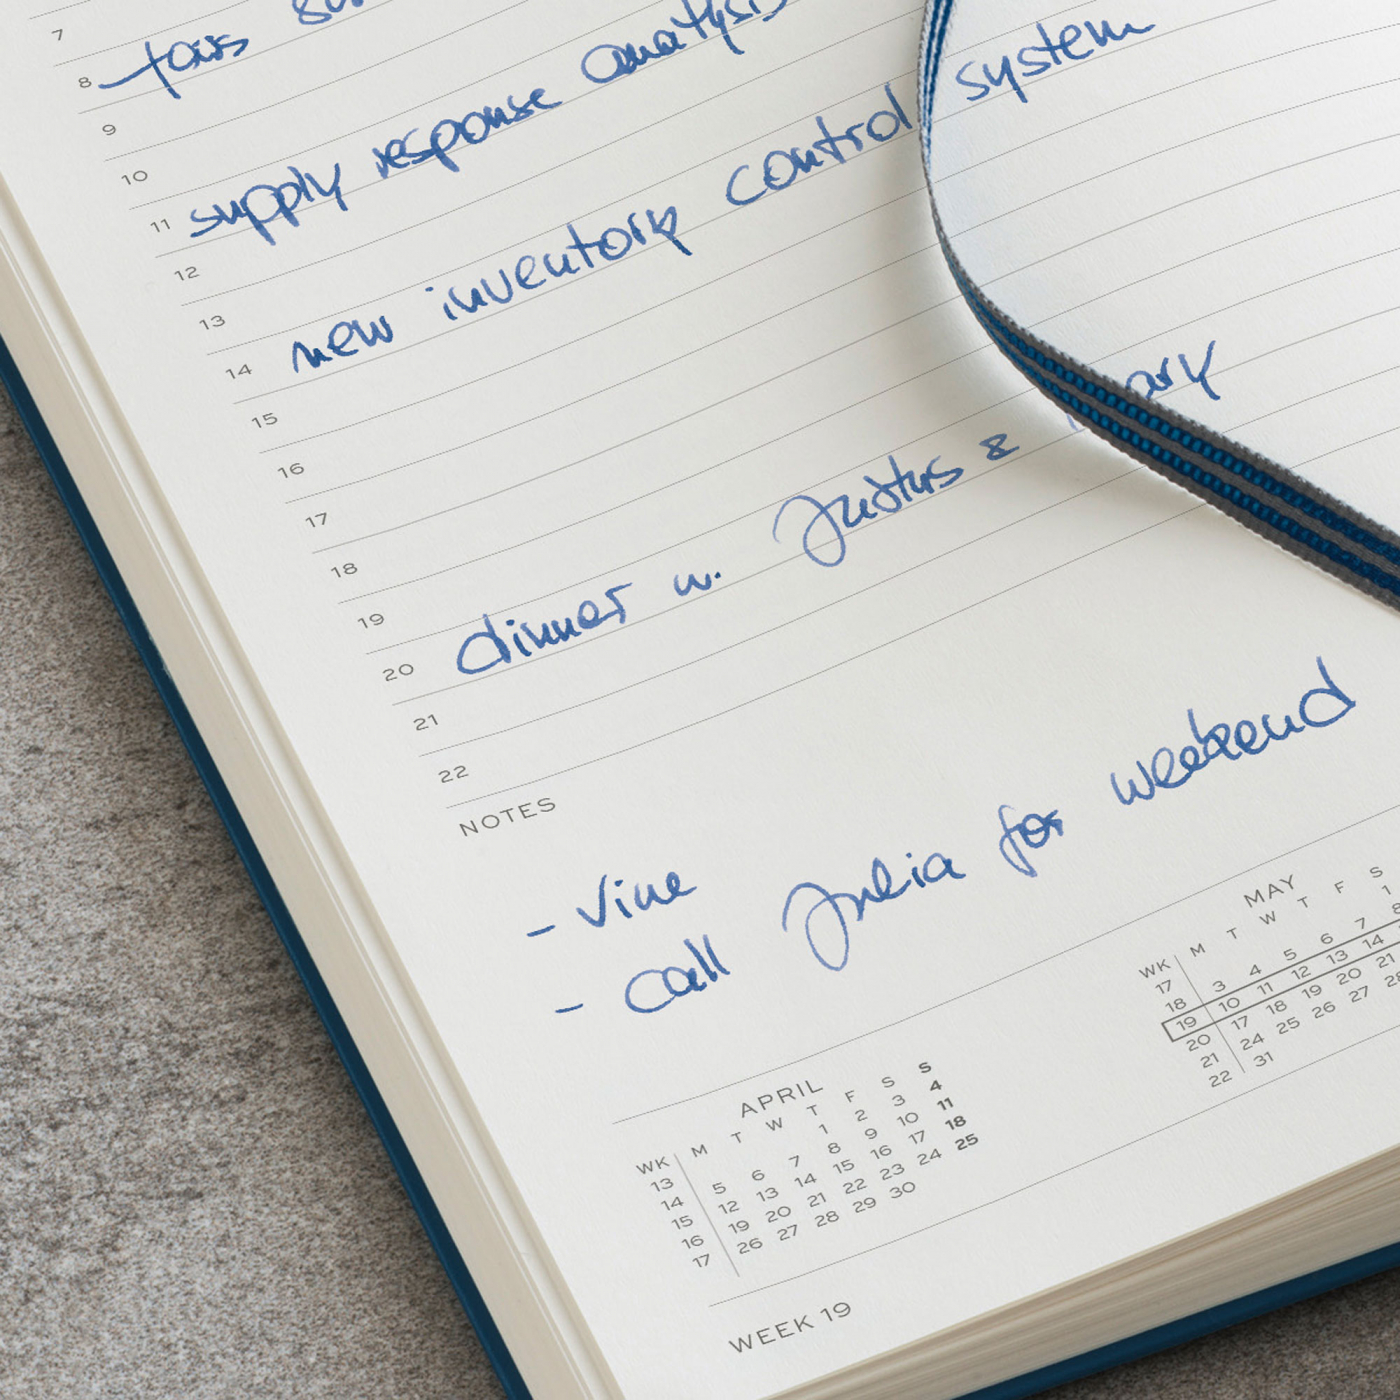 7
8
9
10
supply response analysis
11
12
13
new inventory control system
14
15
16
17
18
19
dinner w. Justus &
20
21
22
NOTES
- Vine
- call Julia for weekend
APRIL
WK M T W T F S S
13 1 2 3 4
14 5 6 7 8 9 10 11
15 12 13 14 15 16 17 18
16 19 20 21 22 23 24 25
17 26 27 28 29 30
MAY
WK M T W T F S
17 1
18 3 4 5 6 7 8
19 10 11 12 13 14
20 17 18 19 20 21
21 24 25 26 27 28
22 31
WEEK 19